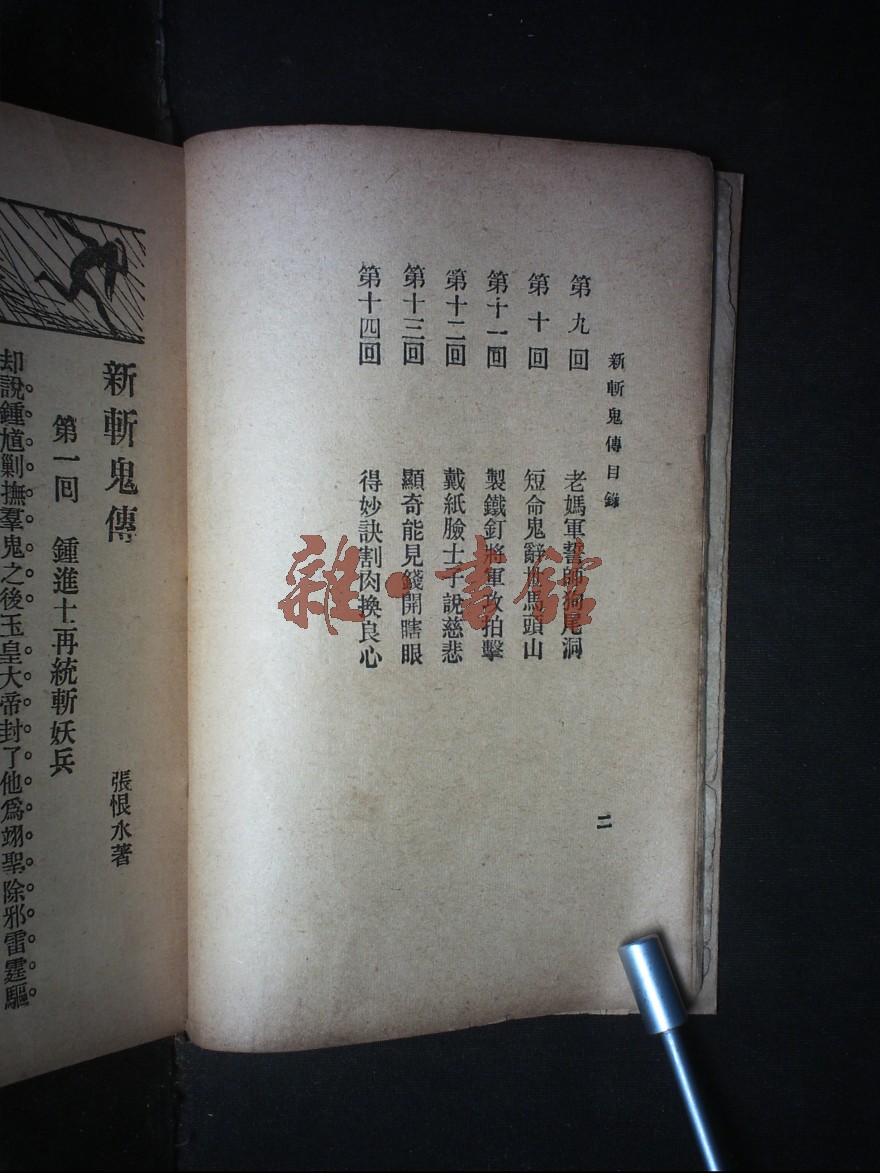 新斬鬼傳目錄
第九回 老媽軍誓師狗尾洞
第十回 短命鬼辭世馬頭山
第十一回 製鐵釘將軍改拍擊
第十二回 戴紙臉士子說慈悲
第十三回 顯奇能見錢開瞎眼
第十四回 得妙訣割肉換良心
二
新斬鬼傳
張恨水著
第一回 鍾進士再統斬妖兵
却說鍾馗剿撫羣鬼之後玉皇大帝封了他爲翊聖除邪雷霆驅
雜·書館